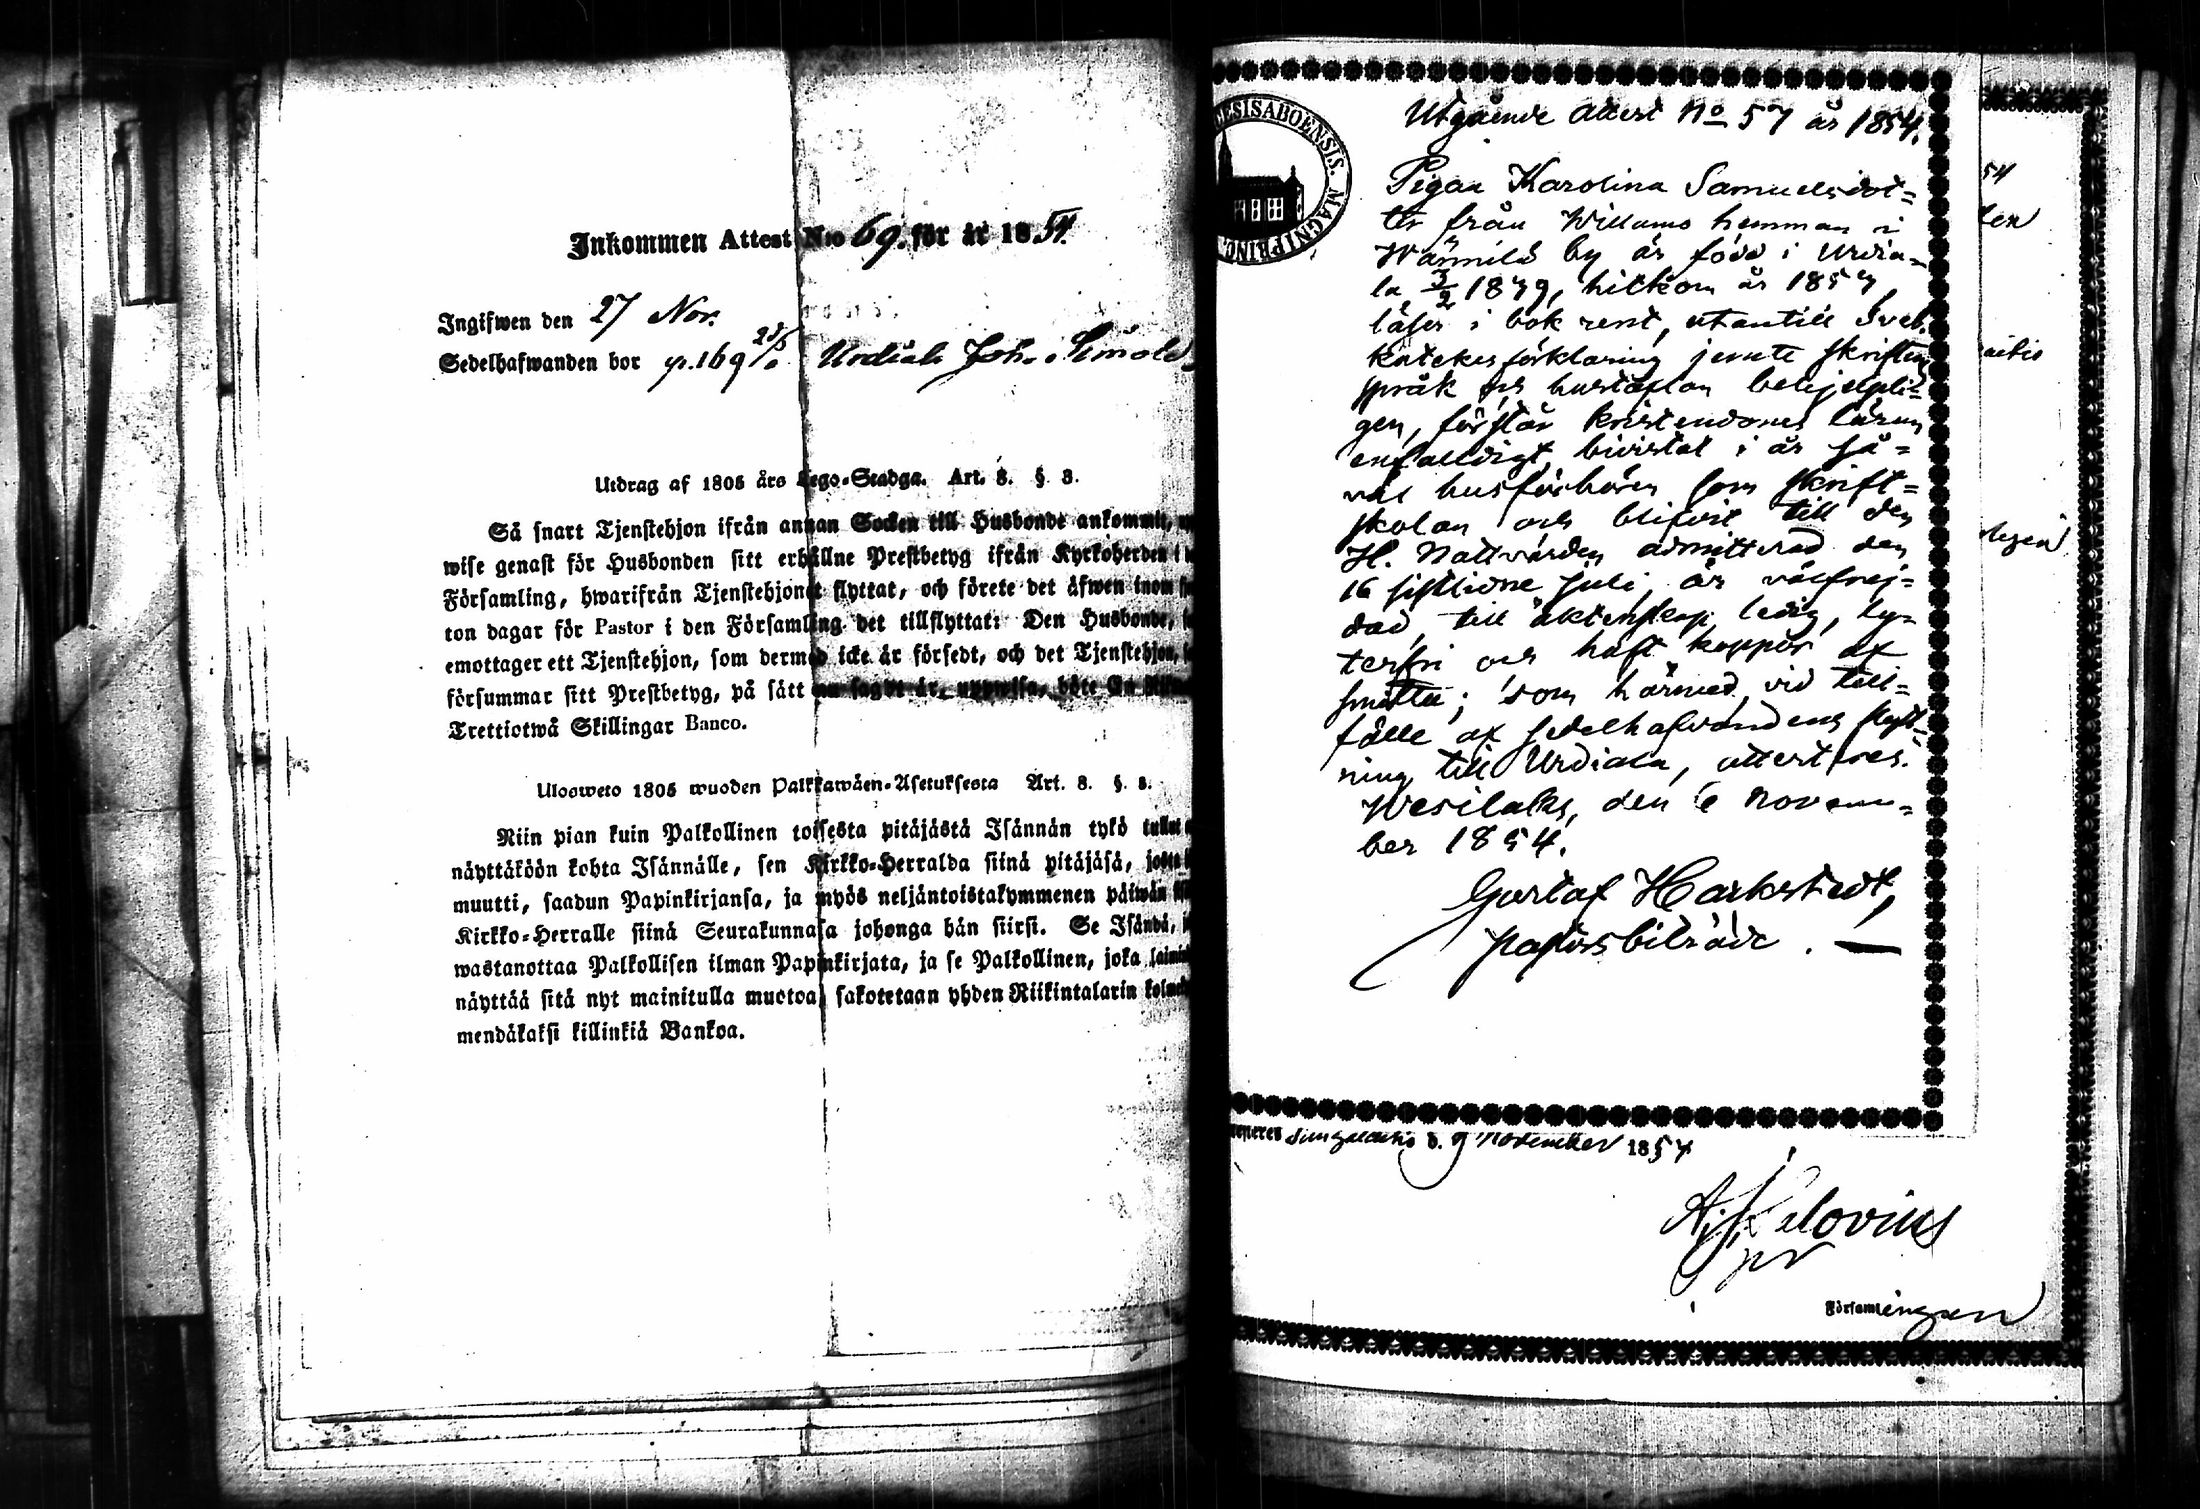 Inkommen Attest N:o 69. för år 1854.
Ingifwen den 27 Nov.
Sedelhafwanden bor p. 169 Urdiala Joh. Simola
Utdrag af 1805 års Lego-Stadga. Art. 8. § 3.
Så snart Tjenstehjon ifrån annan Socken till Husbonde ankommit,
wise genast för Husbonden sitt erhållne Prestbetyg ifrån Kyrkoherden i
Församling, hwarifrån Tjenstehjonet flyttat, och förete det äfwen inom
ton dagar för Pastor i den Församling det tillflyttat: Den Husbonde,
emottager ett Tjenstehjon, som dermed icke är försedt, och det Tjenstehjon,
försummar sitt Prestbetyg, på sätt nu sagdt är, uppwisa, böte En
Trettiotwå Skillingar Banco.
Ulosweto 1805 wuoden Palkkawäen-Asetuksesta Art. 8. §. 3.
Niin pian kuin Palkollinen toisesta pitäjästä Isännän tykö tullut
näyttäköön kohta Isännälle, sen Kirkko-Herralda siinä pitäjäsä, josta
muutti, saadun Papinkirjansa, ja myös neljäntoistakymmenen päiwän
Kirkko-Herralle siinä Seurakunnasa johonga hän siirsi. Se Isändä,
wastanottaa Palkollisen ilman Papinkirjata, ja se Palkollinen, joka
näyttää sitä nyt mainitulla muotoa, sakotetaan yhden Riikintalarin
mendäkaksi killinkiä Bankoa.
CESISABOENSIS. MAGNIPRINC
Utgående attest No 57 år 1854.
Pigan Karolina Samuelsdot=
ter från Willamo hemman i
by är född i Urdia=
la 3/2 1839, hitkom år 1853,
läser i bok rent, utantill Sveb.
katekesförklaring jemte skriftens
språk och hustaflan behjelpli=
gen, förstår kristendomens läran
enfaldigt, bivistat i år så=
väl husförhören som skrift=
skolan och blifvit till den
H. Nattvarden admitterad den
16 sistlidne juli, är välfrej=
dad, till äktenskap ledig, ly=
tesfri och haft koppor af
smitta; som härmed, vid till=
fälle af sedelhafvandens flytt=
ning till Urdiala, attesteres.
Wesilaks, den 6 novem=
ber 1854.
Gustaf Harkstedt,
pastorsbiträde. —
d. 9 November 1854
A. J. Pelovius
Församlingen
54